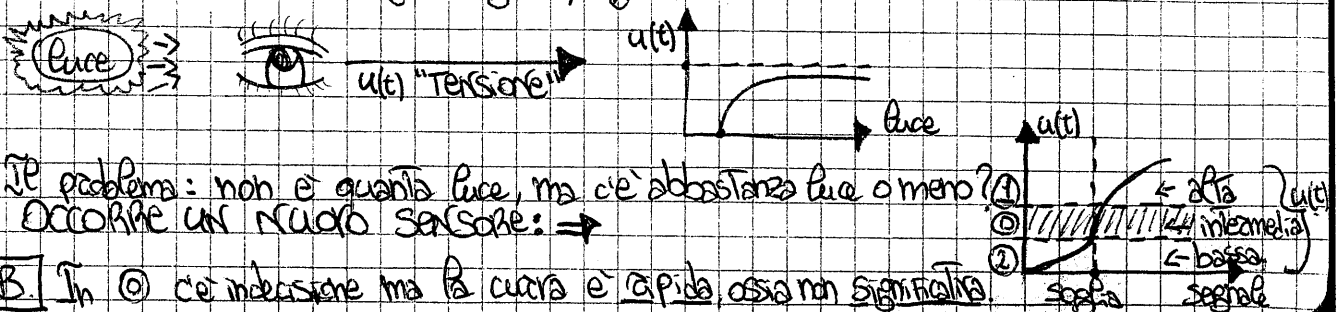 luce
u(t) "Tensione"
u(t)
luce
Il problema: non è quanta luce, ma c'è abbastanza luce o meno?
OCCORRE UN NUOVO SENSORE: ⇒
u(t)
① ← alta
⓪ ← intermedia
② ← bassa
u(t)
soglia segnale
B. In ⓪ c'è indecisione ma la curva è rapida, ossia non significativa.